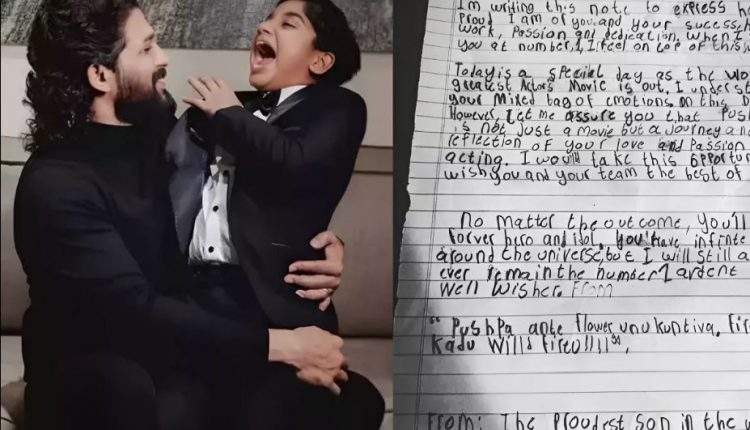 Im writing this note to express h
Proud I am of you and your success, h
work, Passion and dedication, when I
you at number 1, I feel on top of this w
Today is a special day as the wo
greatest Actors Movie is out. I underst
your Mixed bag of emotions on this D
However, let me assure you that Push
is not just a movie but a Journey a
reflection of your love and Passion
acting. I would take this opportun
wish you and your team the best of
No matter the outcome, you'll
forver hero and idol, you have infinte
around the universe, but I will still a
ever remain the number 1 ardent
Well wisher. From
"Pushpa ante flower unukuntiva, fire
Kadu Wild
From: The proudest son in the